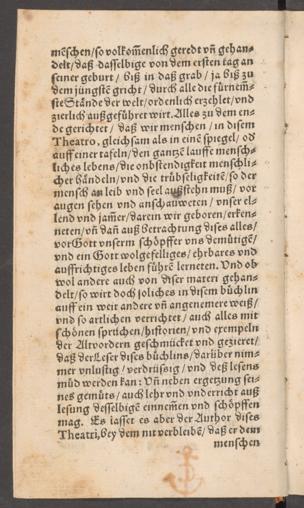 mēschen/so volkom̄enlich geredt vn̄ gehan-
delt/daß dasselbige von dem ersten tag an
seiner geburt/ biß in daß grab/ ja biß zu
dem jüngstē gricht/ durch alle die fürnem̄-
ste Stände der welt/ordenlich erzehlet/vnd
zierlich außgeführet wirt. Alles zu dem en-
de gerichtet/ daß wir menschen/ in disem
Theatro, gleichsam als in einē spiegel/ od̄
auff einer tafeln/den gantzē lauffe mensch-
liches lebens/die onbstendigkeit menschli-
cher händeln/vnd die trübseligkeitē/so der
mensch an leib vnd seel außstehn muß/ vor
augen sehen vnd anschauweten/ vnser el-
lend vnd jam̄er/darein wir geboren/erken-
neten/vn̄ dan̄ auß betrachtung dises alles/
vor Gott vnserm schöpffer vns demütigē/
vnd ein Gott wolgefelliges/ ehrbares vnd
auffrichtiges leben führē lerneten. Vnd ob
wol andere auch von diser materi gehan-
delt/so wirt doch solches in disem büchlin
auff ein weit andere vn̄ angenemere weiß/
vnd so artlichen verrichtet/ auch alles mit
schönen sprüchen/historien/vnd exempeln
der Altvordern geschmücket vnd gezieret/
daß der Leser dises büchlins/darüber nim-
mer vnlustig/ verdrüssig/ vnd deß lesens
müd werden kan: Vn̄ neben ergetzung sei-
nes gemüts/auch lehr vnd vnderricht auß
lesung desselbigē einnem̄en vnd schöpffen
mag. Es lasset es aber der Author dises
Theatri, bey dem nit verbleibē/ daß er dem
menschen